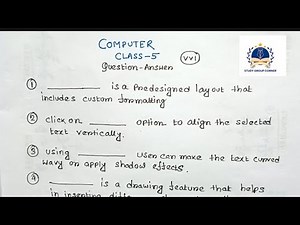 COMPUTER
CLASS-5
Question-Answer
VVI
STUDY GROUP CORNER
① ______ is a Predesigned layout that
includes custom formatting
② click on ______ option to align the selected
text vertically.
③ using ______ user can make the text curved
wavy on apply shadow effects.
④ ______ is a drawing feature that helps
in inserting